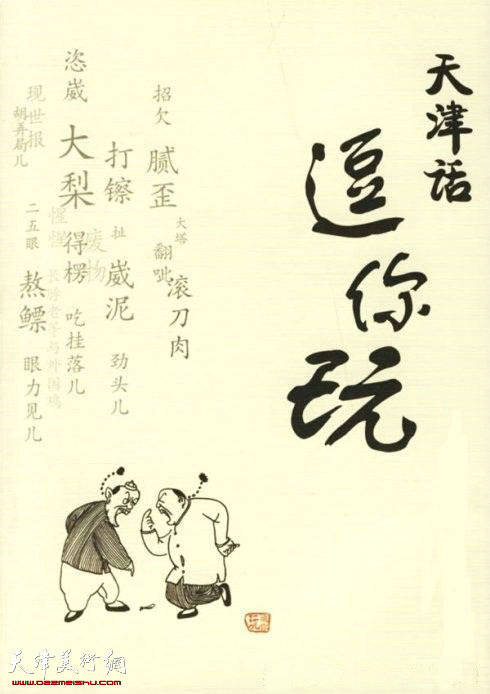 天津话
逗你玩
招欠
腻歪
大塔
翻呲
滚刀肉
打镲
扯
崴泥
劲头儿
恣崴
大梨
得楞
吃挂落儿
废物
惺惺
现世报
胡弄局儿
二五眼
熬鳔
眼力见儿
天津美术网